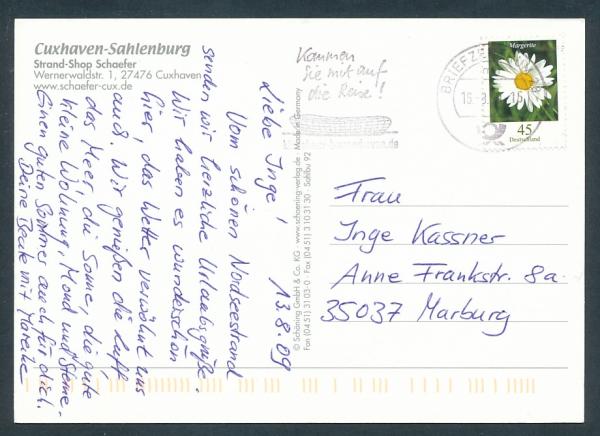 Cuxhaven-Sahlenburg
Strand-Shop Schaefer
Wernerwaldstr. 1, 27476 Cuxhaven
www.schaefer-cux.de
Kommen
Sie mit auf
die Reise!
BRIEFZE
Margerite
45
Deutschland
© Schöning GmbH & Co. KG · www.schoening-verlag.de · Made in Germany
Fax (04 51) 31 03-0 · Fax (04 51) 3 10 31 30 · Sahlbu 92
13.8.09
Liebe Inge!
Vom schönen Nordseestrand
senden wir herzliche Urlaubsgrüße.
Wir haben es wunderschön
hier, das Wetter verwöhnt uns
auch. Wir genießen die Luft,
das Meer, die Sonne, die gute
kleine Wohnung, Mond und Sterne.
Einen guten Sommer auch für dich.
Deine Beate mit Mareike
Frau
Inge Kassner
Anne Frankstr. 8a.
35037 Marburg